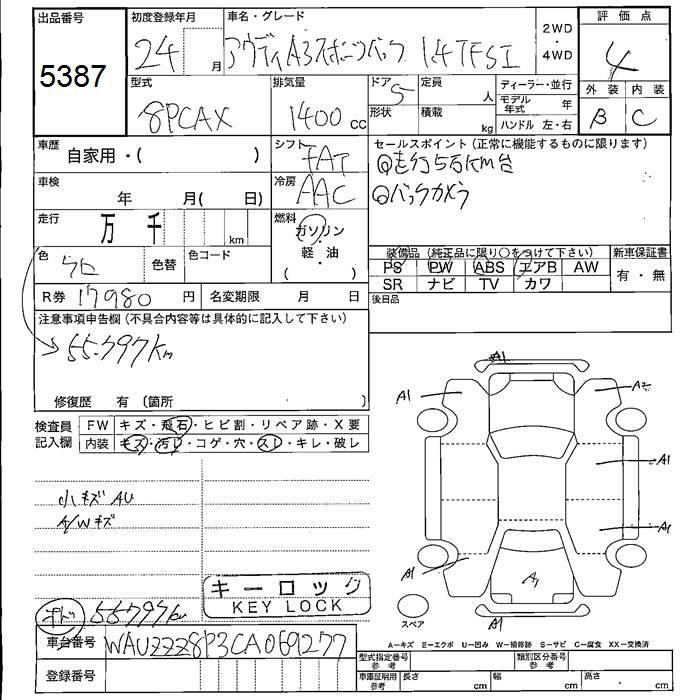 出品番号 5387
初度登録年月 24 月
車名・グレード アウディA3スポーツバック 1.4TFSI
2WD・4WD
評価点 4
型式 8PCAX
排気量 1400 cc
ドア 5
形状
定員 人
積載 kg
ディーラー・並行
モデル年式 年
ハンドル 左・右
外装 内装
B C
車歴 自家用・( )
シフト FAT
セールスポイント(正常に機能するものに限ります)
◎走行5万KM台
◎バックカメラ
車検 年 月( 日)
冷房 AAC
走行 万 千 km
燃料 ガソリン・軽・油 ( )
色 クロ 色替 色コード
装備品(純正品に限り○をつけて下さい) 新車保証書
PS PW ABS エアB AW 有・無
SR ナビ TV カワ
R券 17980 円 名変期限 月 日
後日品
注意事項申告欄(不具合内容等は具体的に記入して下さい)
55.797km
修復歴 有(箇所 )
検査員記入欄 FW キズ・飛石・ヒビ割・リペア跡・X要
内装 キズ・汚レ・コゲ・穴・スレ・キレ・破レ
A1
A1 A2
A1
A1
A1 A1
A1
小キズ AU
A/Wキズ
キーロック
KEY LOCK
スペア
オド 55797km
車台番号 WAUZZZ8P3CA069277
A-キズ E-エクボ U-凹み W-補修跡 S-サビ C-腐食 XX-交換済
登録番号
型式指定番号 参考 類別区分番号 参考
車庫証明用 参考 長さ cm 幅 cm 高さ cm